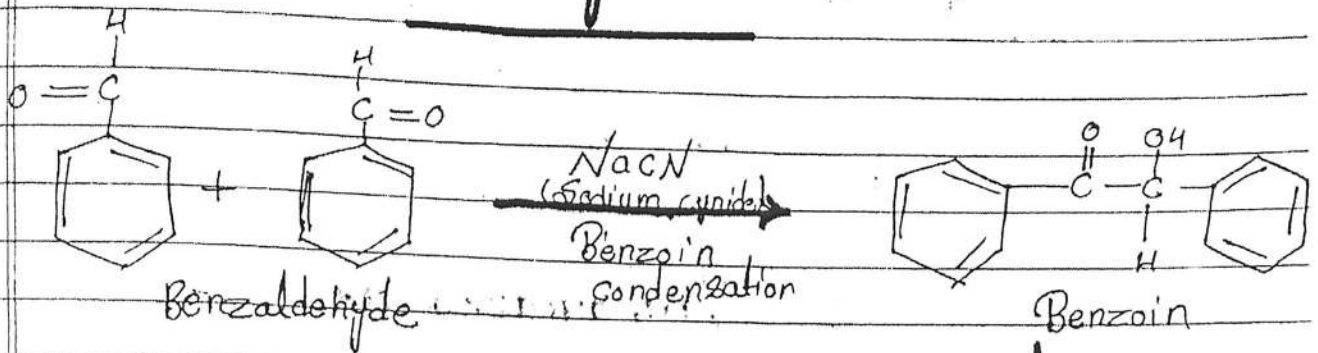 H
O = C
H
C = O
+
NaCN
(Sodium cynide)
Benzoin
condensation
O
OH
C - C
H
Benzaldehyde
Benzoin